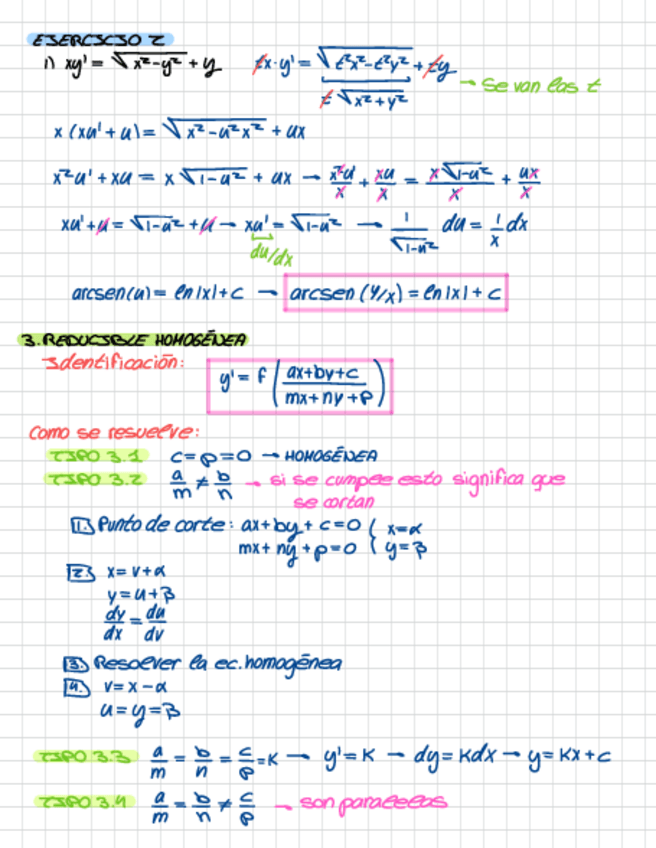 EJERCICIO 2
1) xy' = √(x²-y²) + y   tx·y' = √(t²x²-t²y²) + ty → Se van las t
t √(x²+y²)
x (xu'+u) = √(x²-u²x²) + ux
x²u' + xu = x √(1-u²) + ux → x²u'/x + xu/x = x√(1-u²)/x + ux/x
xu'+u = √(1-u²) + u → xu' = √(1-u²) → 1/√(1-u²) du = 1/x dx
du/dx
arcsen(u) = ln|x|+c → arcsen (y/x) = ln|x| + c
3. REDUCIBLE HOMOGÉNEA
Identificación: y' = f ((ax+by+c)/(mx+ny+p))
Como se resuelve:
TIPO 3.1 c = p = 0 → HOMOGÉNEA
TIPO 3.2 a/m ≠ b/n → si se cumple esto significa que
se cortan
1. Punto de corte: ax+by+c=0 { x=α
mx+ny+p=0 { y=β
2. x = v+α
y = u+β
dy/dx = du/dv
3. Resolver la ec. homogénea
4. v = x - α
u = y = β
TIPO 3.3 a/m = b/n = c/p = K → y' = K → dy = Kdx → y = Kx + c
TIPO 3.4 a/m = b/n ≠ c/p → son paralelas